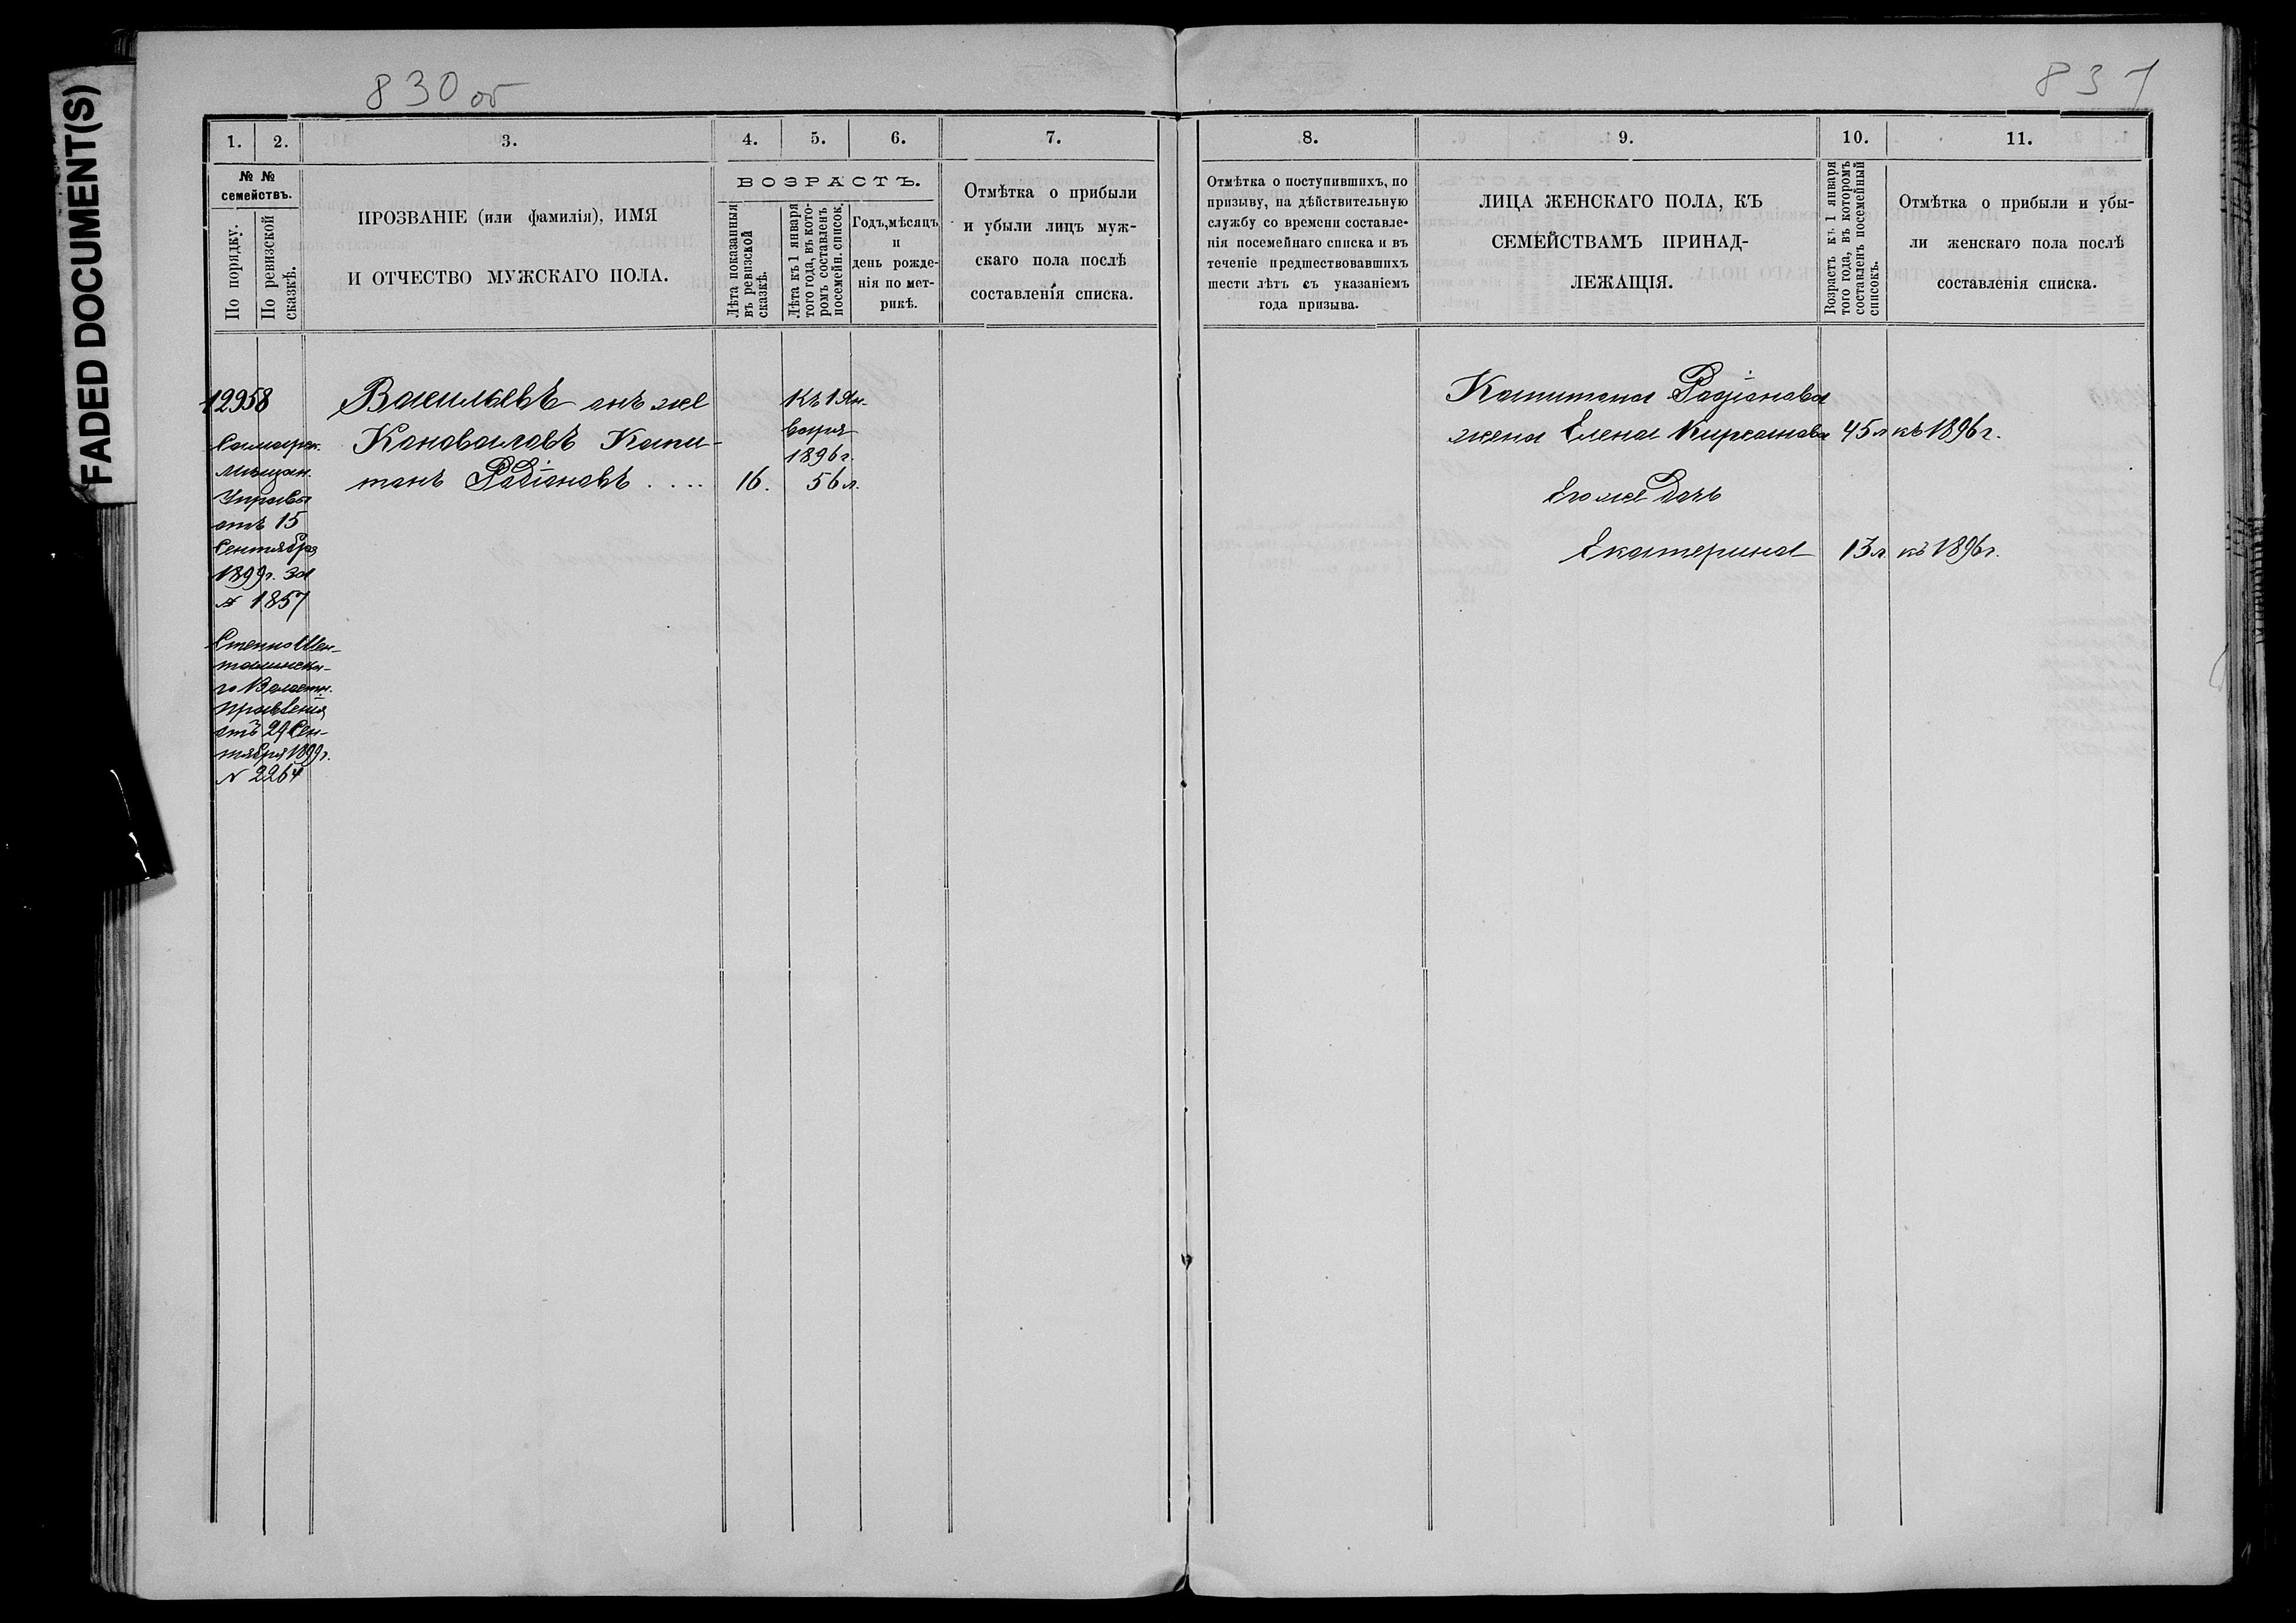 FADED DOCUMENT(S)
830 об
837
1.
2.
3.
4.
5.
6.
7.
№ №
семействъ.
По порядку.
По ревизской
сказкѣ.
ПРОЗВАНІЕ (или фамилія), ИМЯ
И ОТЧЕСТВО МУЖСКАГО ПОЛА.
ВОЗРАСТЪ.
Лѣта показанныя
въ ревизской
сказкѣ.
Лѣта къ 1 января
того года, въ кото-
ромъ составленъ
посемейн. список.
Годъ, мѣсяцъ
и
день рожде-
нія по мет-
рикѣ.
Отмѣтка о прибыли
и убыли лицъ муж-
скаго пола послѣ
составленія списка.
12958
Самарск.
Мѣщан.
Управы
отъ 15
Сентября
1899г. за
№ 1857
Степно
го Волостн.
Правленія
отъ 29 Сен-
тября 1899г.
№ 2264
Васильевъ онъ же
Коноваловъ Капи-
тонъ Радіоновъ . . . .
16.
Къ 1 Ян-
варя
1896г.
56 л.
8.
9.
10.
11.
Отмѣтка о поступившихъ, по
призыву, на дѣйствительную
службу со времени составле-
нія посемейнаго списка и въ
теченіе предшествовавшихъ
шести лѣтъ съ указаніемъ
года призыва.
ЛИЦА ЖЕНСКАГО ПОЛА, КЪ
СЕМЕЙСТВАМЪ ПРИНАД-
ЛЕЖАЩІЯ.
Возрастъ къ 1 января
того года, въ которомъ
составленъ посемейный
списокъ.
Отмѣтка о прибыли и убы-
ли женскаго пола послѣ
составленія списка.
Капитона Радіонова
жена Елена 45 л къ 1896г.
Его же дочь
Екатерина 13 л. къ 1896г.